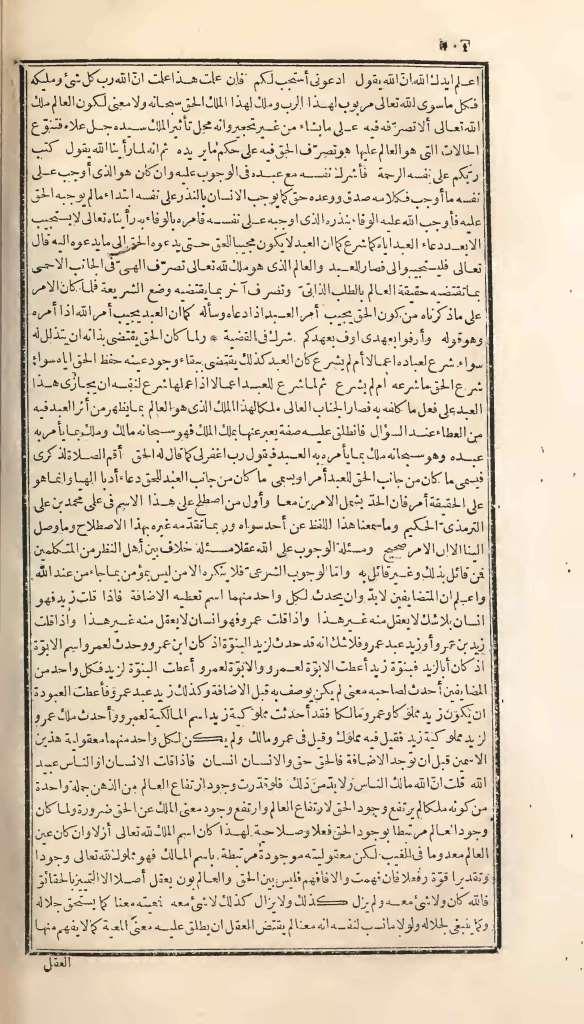 ٢٠٤
اعلم ايدك الله انّ الله يقول ادعونى أستجب لكم فاذ علمت هذا علمت انّ الله رب كل شئ ومليكه
فكل ماسوى الله تعالى مربوب لهذا الرب وملك لهذا الملك الحق سبحانه ولا معنى لكون العالم ملك
الله تعالى ألا تصرّفه فيه على ما يشاء من غير تحجير وانه محل تأثير الملك سيده جل علاه فتنوّع
الحالات التى هو العالم عليها هو تصرّف الحق فيه على حكم ما يريده ثم انه لما رأينا الله يقول كتب
ربكم على نفسه الرحمة فأشرك نفسه مع عبده فى الوجوب عليه وان كان هو الذى أوجب على
نفسه ما أوجب فكلامه صدق ووعده حق كما يوجب الانسان بالنذر على نفسه ابتداء مالم يوجبه الحق
عليه فأوجب الله عليه الوفاء بنذره الذى اوجبه على نفسه فامره بالوفاء به رأيناه تعالى لا يستجيب
الا بعد دعاء العبد اياه كما شرع كما ان العبد لا يكون مجيبا للحق حتى يدعوه الحق الى ما يدعوه اليه قال
تعالى فليستجيبوا لى فصار للعبد والعالم الذى هو ملك لله تعالى تصرّف الهىّ فى الجانب الاحمى
بما تقتضيه حقيقة العالم بالطلب الذاتى وتصرف آخر بما يقتضيه وضع الشريعة فلما كان الامر
على ماذكرناه من كون الحق يجيب أمر العبد اذا دعاه وسأله كما ان العبد يجيب أمر الله اذا أمره
وهو قوله وأوفوا بعهدى اوف بعهدكم شرك فى القضية * ولما كان الحق يقتضى بذاته ان يتذلل له
سواء شرع لعباده اعمالا أم لم يشرع كان العبد كذلك يقتضى ببقاء وجود عينه حفظ الحق اياه سواء
شرع الحق ماشرعه أم لم يشرع ثم لما شرع للعبد اعمالا اذا عملها شرع لنفسه ان يجازى هذا
العبد على فعل ما كلفه به فصار الجناب العالى ملكا لهذا الملك الذى هو العالم بما يظهر من أثر العبد فيه
من العطاء عند السؤال فانطلق عليه صفة يعبر عنها بملك الملك فهو سبحانه مالك وملك بما يأمر به
عبده وهو سبحانه ملك بما يأمره به العبد فيقول رب اغفر لى كما قال له الحق أقم الصلاة لذكرى
فيسمى ما كان من جانب الحق للعبد أمرا ويسمى ما كان من جانب العبد للحق دعاء أدبا الهيا وانما هو
على الحقيقة أمر فان الحدّ يشمل الامرين معا وأول من اصطلح على هذا الاسم فى علمى محمد بن على
الترمذى الحكيم وما سمعنا هذا اللفظ عن أحد سواه وربما تقدّمه غيره بهذا الاصطلاح وماوصل
الينا الا ان الامر صحيح ومسئلة الوجوب على الله عقلا مسئلة خلاف بين أهل النظر من المتكلمين
فمن قائل بذلك وغير قائل به وأما الوجوب الشرعى فلا ينكره الا من ليس بمؤمن بما جاء من عند الله
واعلم ان المتضايفين لابدّ وان يحدث لكل واحد منهما اسم تعطيه الاضافة فاذا قلت زيد فهو
انسان بلاشك لا يعقل منه غير هذا واذا قلت عمرو فهو انسان لا يعقل منه غير هذا واذا قلت
زيد بن عمرو أو زيد عبد عمرو فلاشك انه قد حدث لزيد البنوّة اذ كان ابن عمرو وحدث لعمرو اسم الابوّة
اذ كان أبا لزيد فبنوّة زيد أعطت الابوّة لعمرو والابوّة لعمرو أعطت البنوّة لزيد فكل واحد من
المضايفين أحدث لصاحبه معنى لم يكن يوصف به قبل الاضافة وكذلك زيد عبد عمرو فأعطت العبودة
ان يكون زيد مملوكا وعمرو مالكا فقد أحدثت مملوكية زيد اسم المالكية لعمرو وأحدث ملك عمرو
لزيد مملوكية زيد فقيل فيه مملوك وقيل فى عمرو مالك ولم يكن لكل واحد منهما معقولية هذين
الاسمين قبل ان توجد الاضافة فالحق حق والانسان انسان فاذا قلت الانسان او الناس عبيد
الله قلت انّ الله مالك الناس ولابدّ من ذلك فلو قدّرت وجود ارتفاع العالم من الذهن جملة واحدة
من كونه ملكا لم يرتفع وجود الحق لارتفاع العالم وارتفع وجود معنى الملك عن الحق ضرورة ولما كان
وجود العالم مرتبطا بوجود الحق فعلا وصلاحية لهذا كان اسم الملك لله تعالى أزلا وان كان عين
العالم معدوما فى العين لكن معقوليته موجودة مرتبطة باسم المالك فهو مملوك لله تعالى وجودا
وتقديرا قوّة وفعلا فان فهمت والا فافهم فليس بين الحق والعالم بون يعقل أصلا الا التمييز بالحقائق
فالله كان ولا شئ معه ولم يزل كذلك ولا يزال كذلك لا شئ معه فمعيته معنا كما يستحق جلاله
وكما ينبغى لجلاله ولولا مانسب لنفسه انه معنا لم يقتض العقل ان يطلق عليه معنى المعية كما لا يفهم منها
العقل